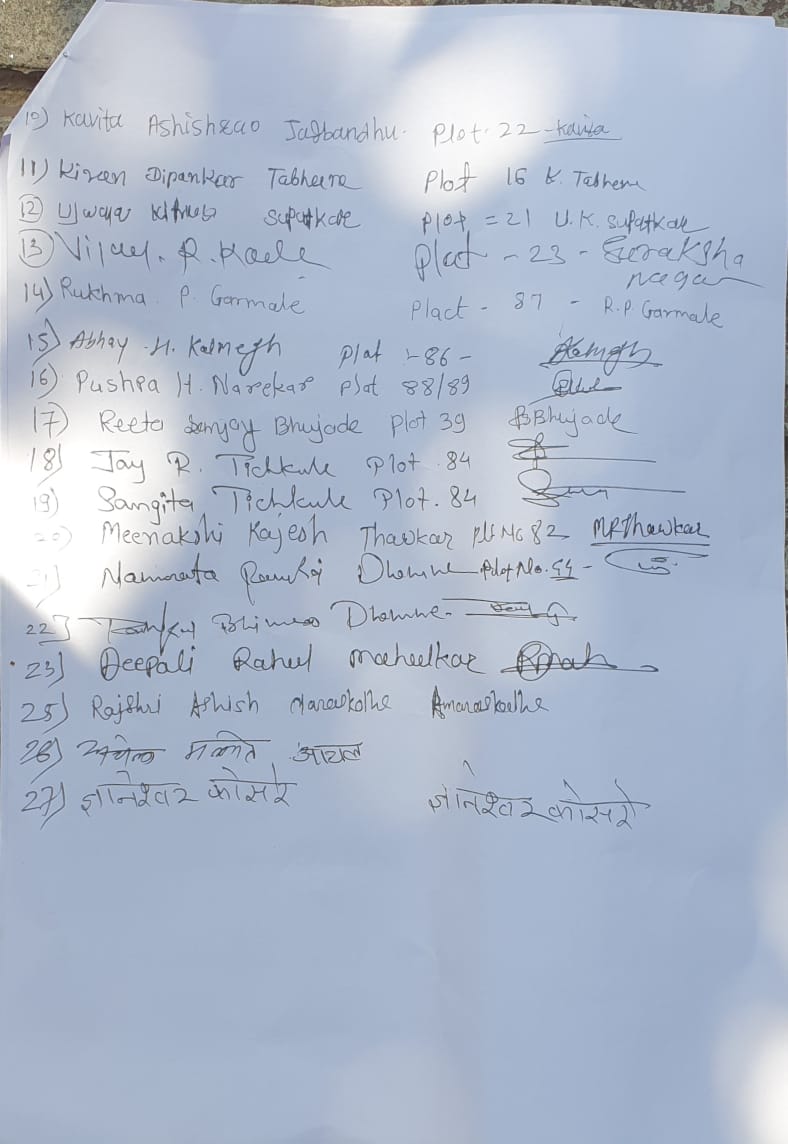 10) Kavita Ashishrao Jagbandhu. Plot. 22 - Kavita
11) Kiran Dipankar Tabhane Plot 16 K. Tabhane
12) Ujwala Supatkar Plot = 21 U.K. Supatkar
13) Vijay. R. Kaele Plat - 23 - Suraksha
nagar
14) Rukhma P. Garmale Plact - 87 - R.P. Garmale
15) Abhay .H. Kalmegh Plat :- 86 -
16) Pushpa H. Narekar plot 88/89
17) Reeta Sanjay Bhujade Plot 39 Bhujade
18) Jay R. Tichkule Plot . 84
19) Sangita Tichkule Plot. 84
20) Meenakshi Rajesh Thawkar Plt No 82 MRThawkar
21) Namrata Pankaj Dhomne Plot No.
22) Dhomne
23) Deepali Rahul
25) Rajshri Ashish Maraskolhe
26)
27) ज्ञानेश्वर कोसरे ज्ञानेश्वर कोसरे